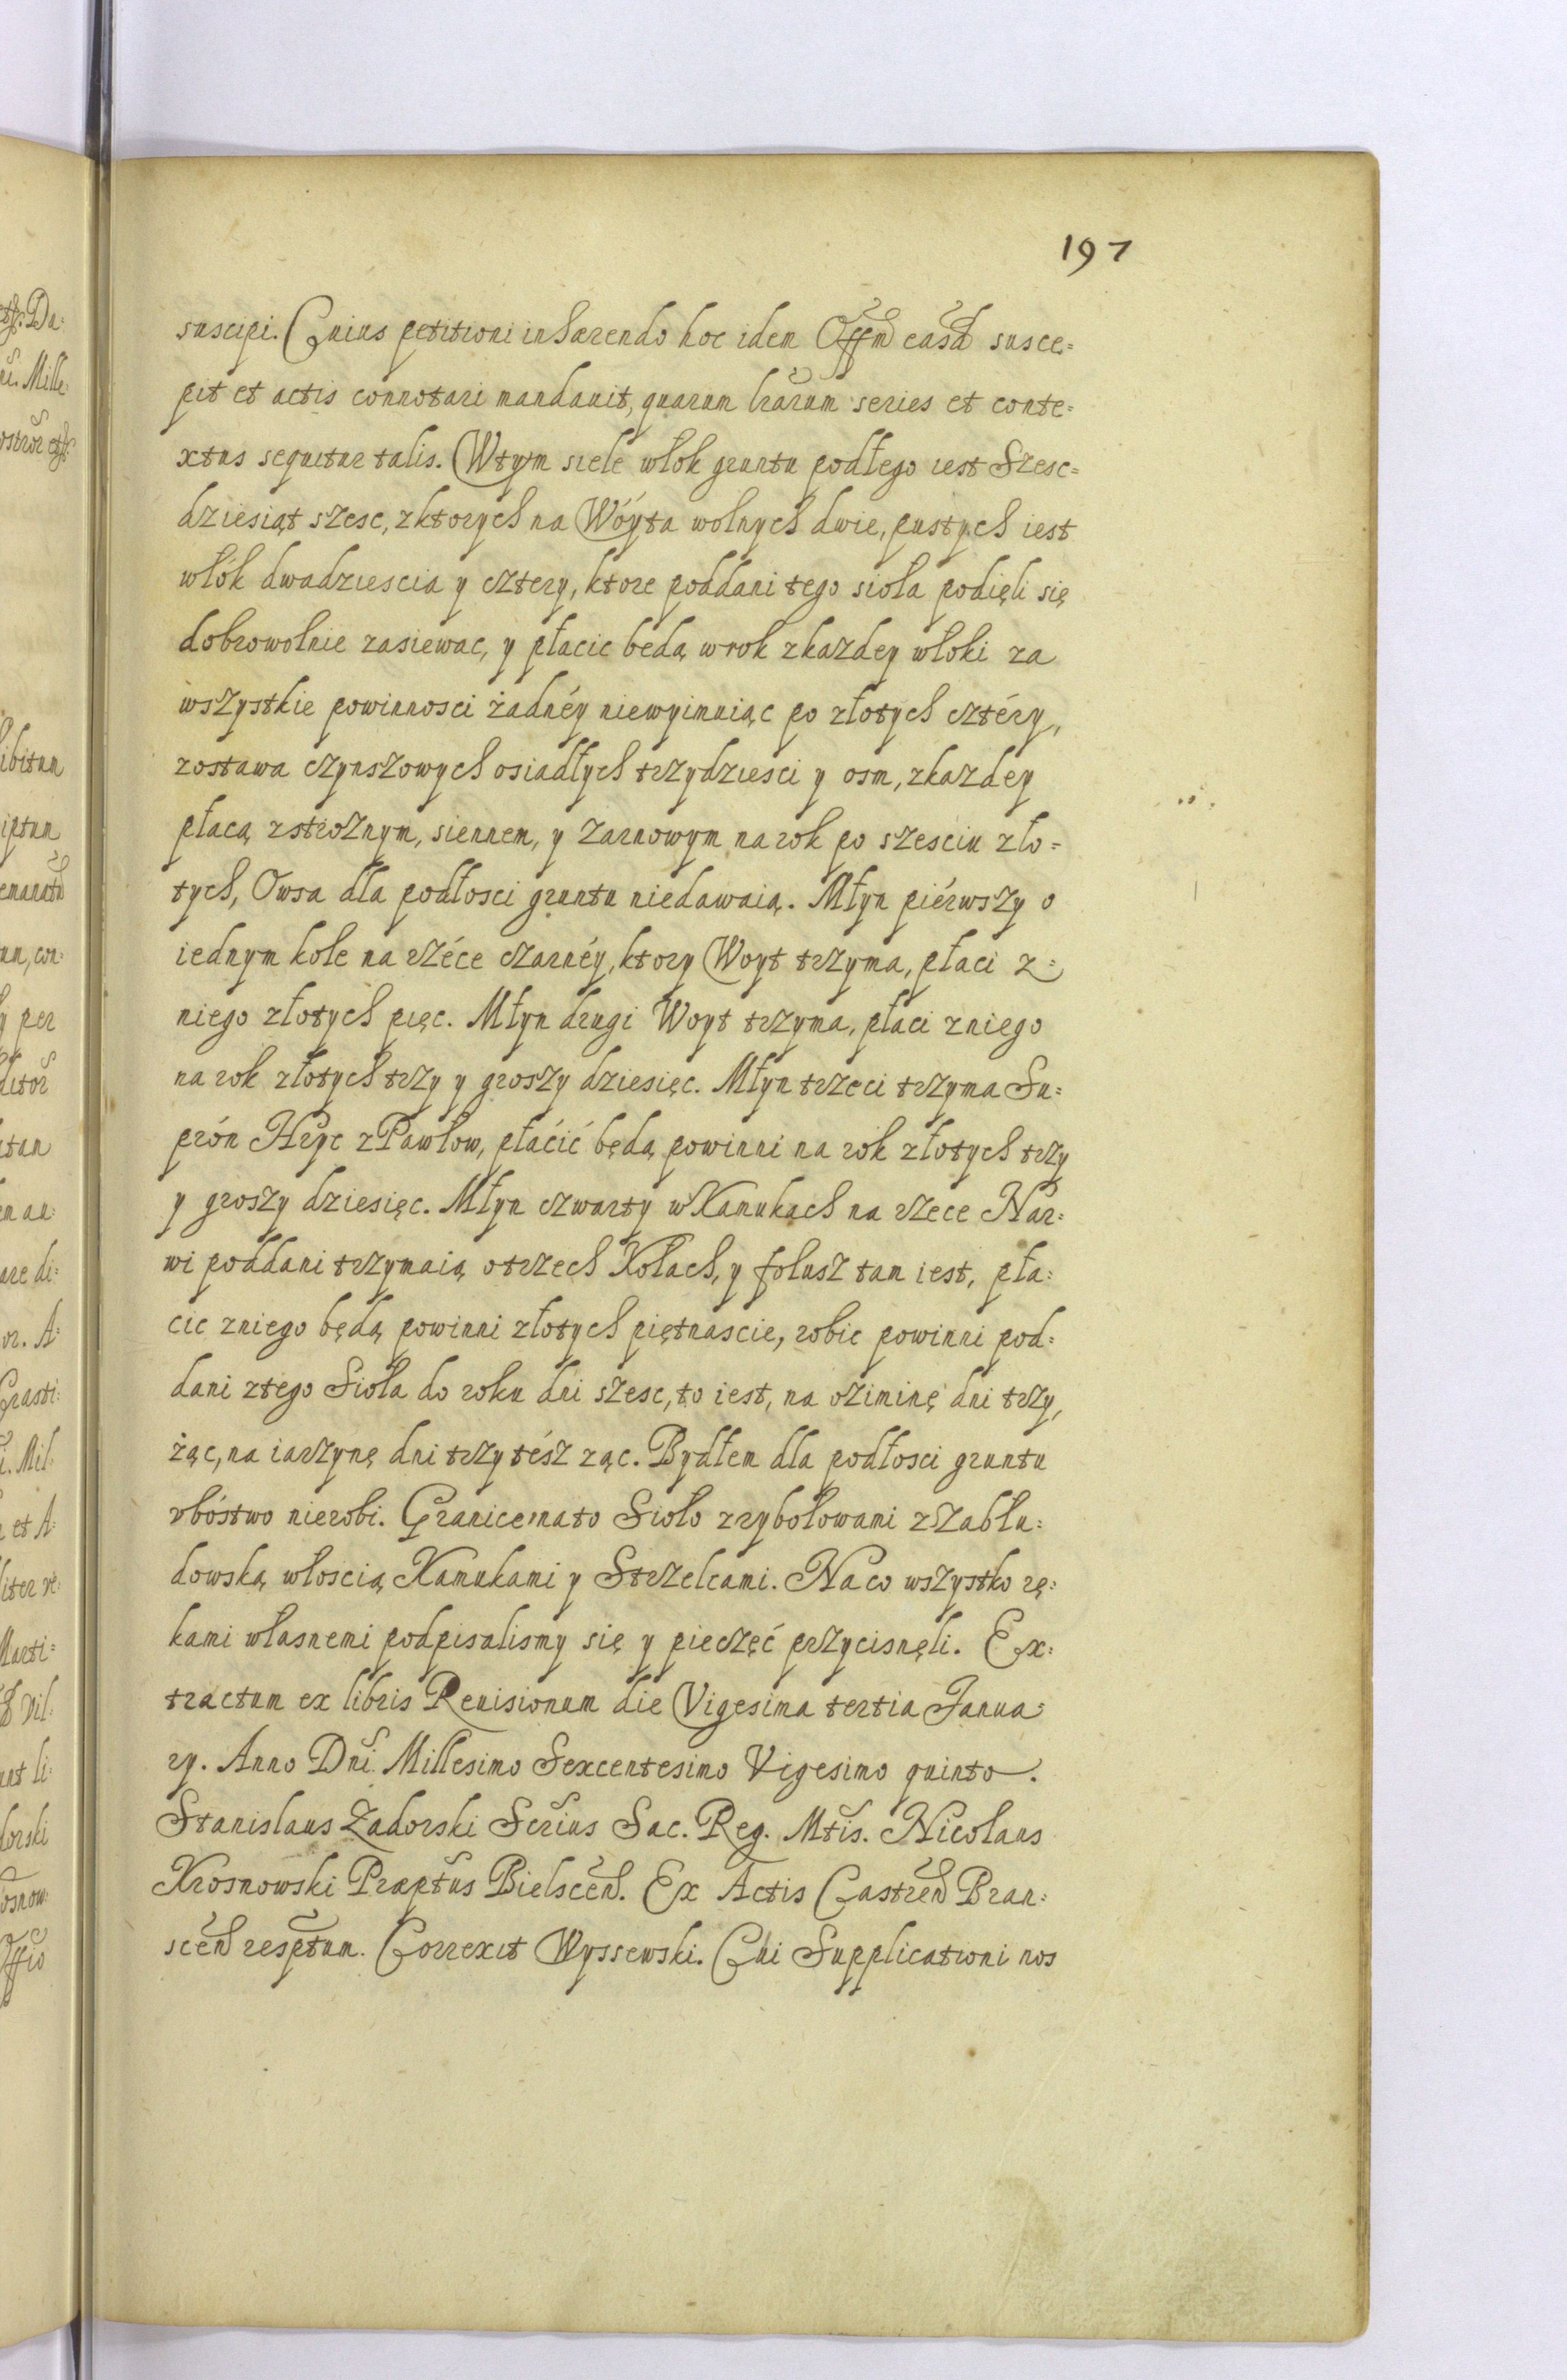 197
suscipi. Cuius petitioni inhærendo hoc idem Offm easd susce=
pit et actis connotari mandauit, quarum lrarum series et conte=
xtus sequitur talis. Wtym siele włok gruntu podłego iest Szesc=
dziesiąt szesc, zktorych na Wóyta wolnych dwie, pustych iest
włók dwadziescia y cztery, ktore poddani tego sioła podięli się
dobrowolnie zasiewac, y płacic beda w rok zkazdey włoki za
wszystkie powinnosci żadnéy niewyimuiąc po złotych cztéry,
zostawa czynszowych osiadłych trzydziesci y osm, zkazdey
płacą zstroznym, siennem, y zarnowym na rok po szesciu zło=
tych, Owsa dla podłosci gruntu niedawaią. Młyn piérwszy o
iednym kole na rzéce czarnéy, ktory Woyt trzyma, płaci z=
niego złotych pięc. Młyn drugi Woyt trzyma, płaci zniego
na rok złotych trzy y groszy dziesięc. Młyn trzeci trzyma Su=
prón Hryc zPawłow, płáćić będą powinni na rok złotych trzy
y groszy dziesięc. Młyn czwarty wKanukach na rzece Nar=
wi poddani trzymaią otrzech Kołach, y folusz tam iest, pła=
cic zniego będą powinni złotych piętnascie, robic powinni pod=
dani ztego Sioła do roku dni szesc, to iest, na oziminę dni trzy,
żąc, na iarzynę dni trzy tész ząc. Bydłem dla podłosci gruntu
vbóstwo nierobi. Granicemato Sioło zrybołowami zZabłu=
dowską włoscią Kamukami y Strzelcami. Naco wszystko rę=
kami własnemi podpisalismy się y pieczęć przycisnęli. Ex=
tractum ex libris Reuisionum die Vigesima tertia Janua=
ry. Anno Dni Millesimo Sexcentesimo Vigesimo quinto.
Stanislaus Zadorski Scrius Sac. Reg. Mtis. Nicolaus
Krosnowski Præptus Bielscen. Ex Actis Castren Bran=
scen resptum. Correxit Wyssewski. Cui Supplicationi nos